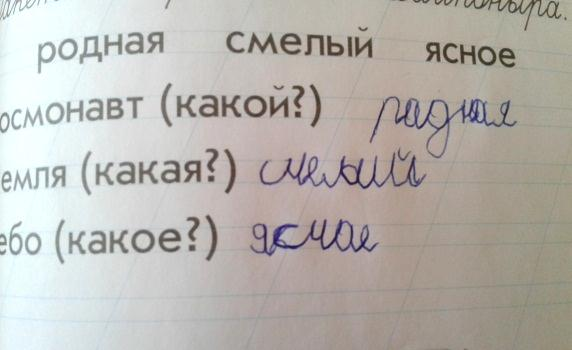 родная смелый ясное
осмонавт (какой?) радная
емля (какая?) смелый
ебо (какое?) ясное